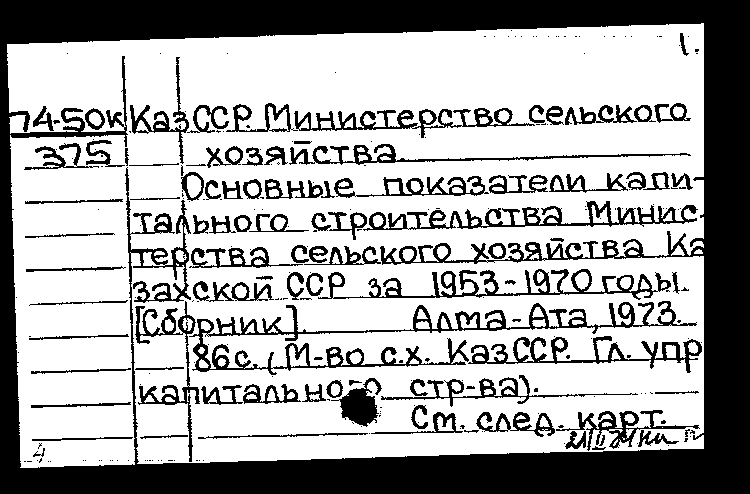 1.
74-50к КазССР. Министерство сельского
375 хозяйства.
Основные показатели капи-
тального строительства Минис-
терства сельского хозяйства Ка
захской ССР за 1953-1970 годы.
[Сборник]. Алма-Ата, 1973.
86 с. (М-во с.х. КазССР. Гл. упр
капитального стр-ва).
См. след. карт.
4